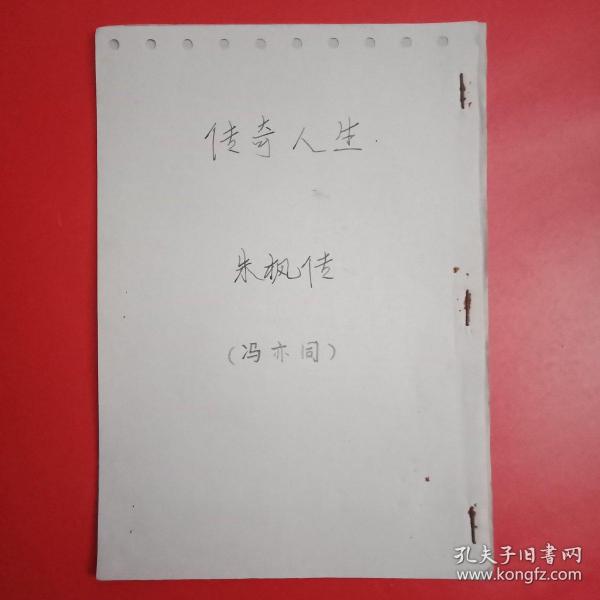 传奇人生.
朱枫传
(冯亦同)
孔夫子旧書网
www.kongfz.com